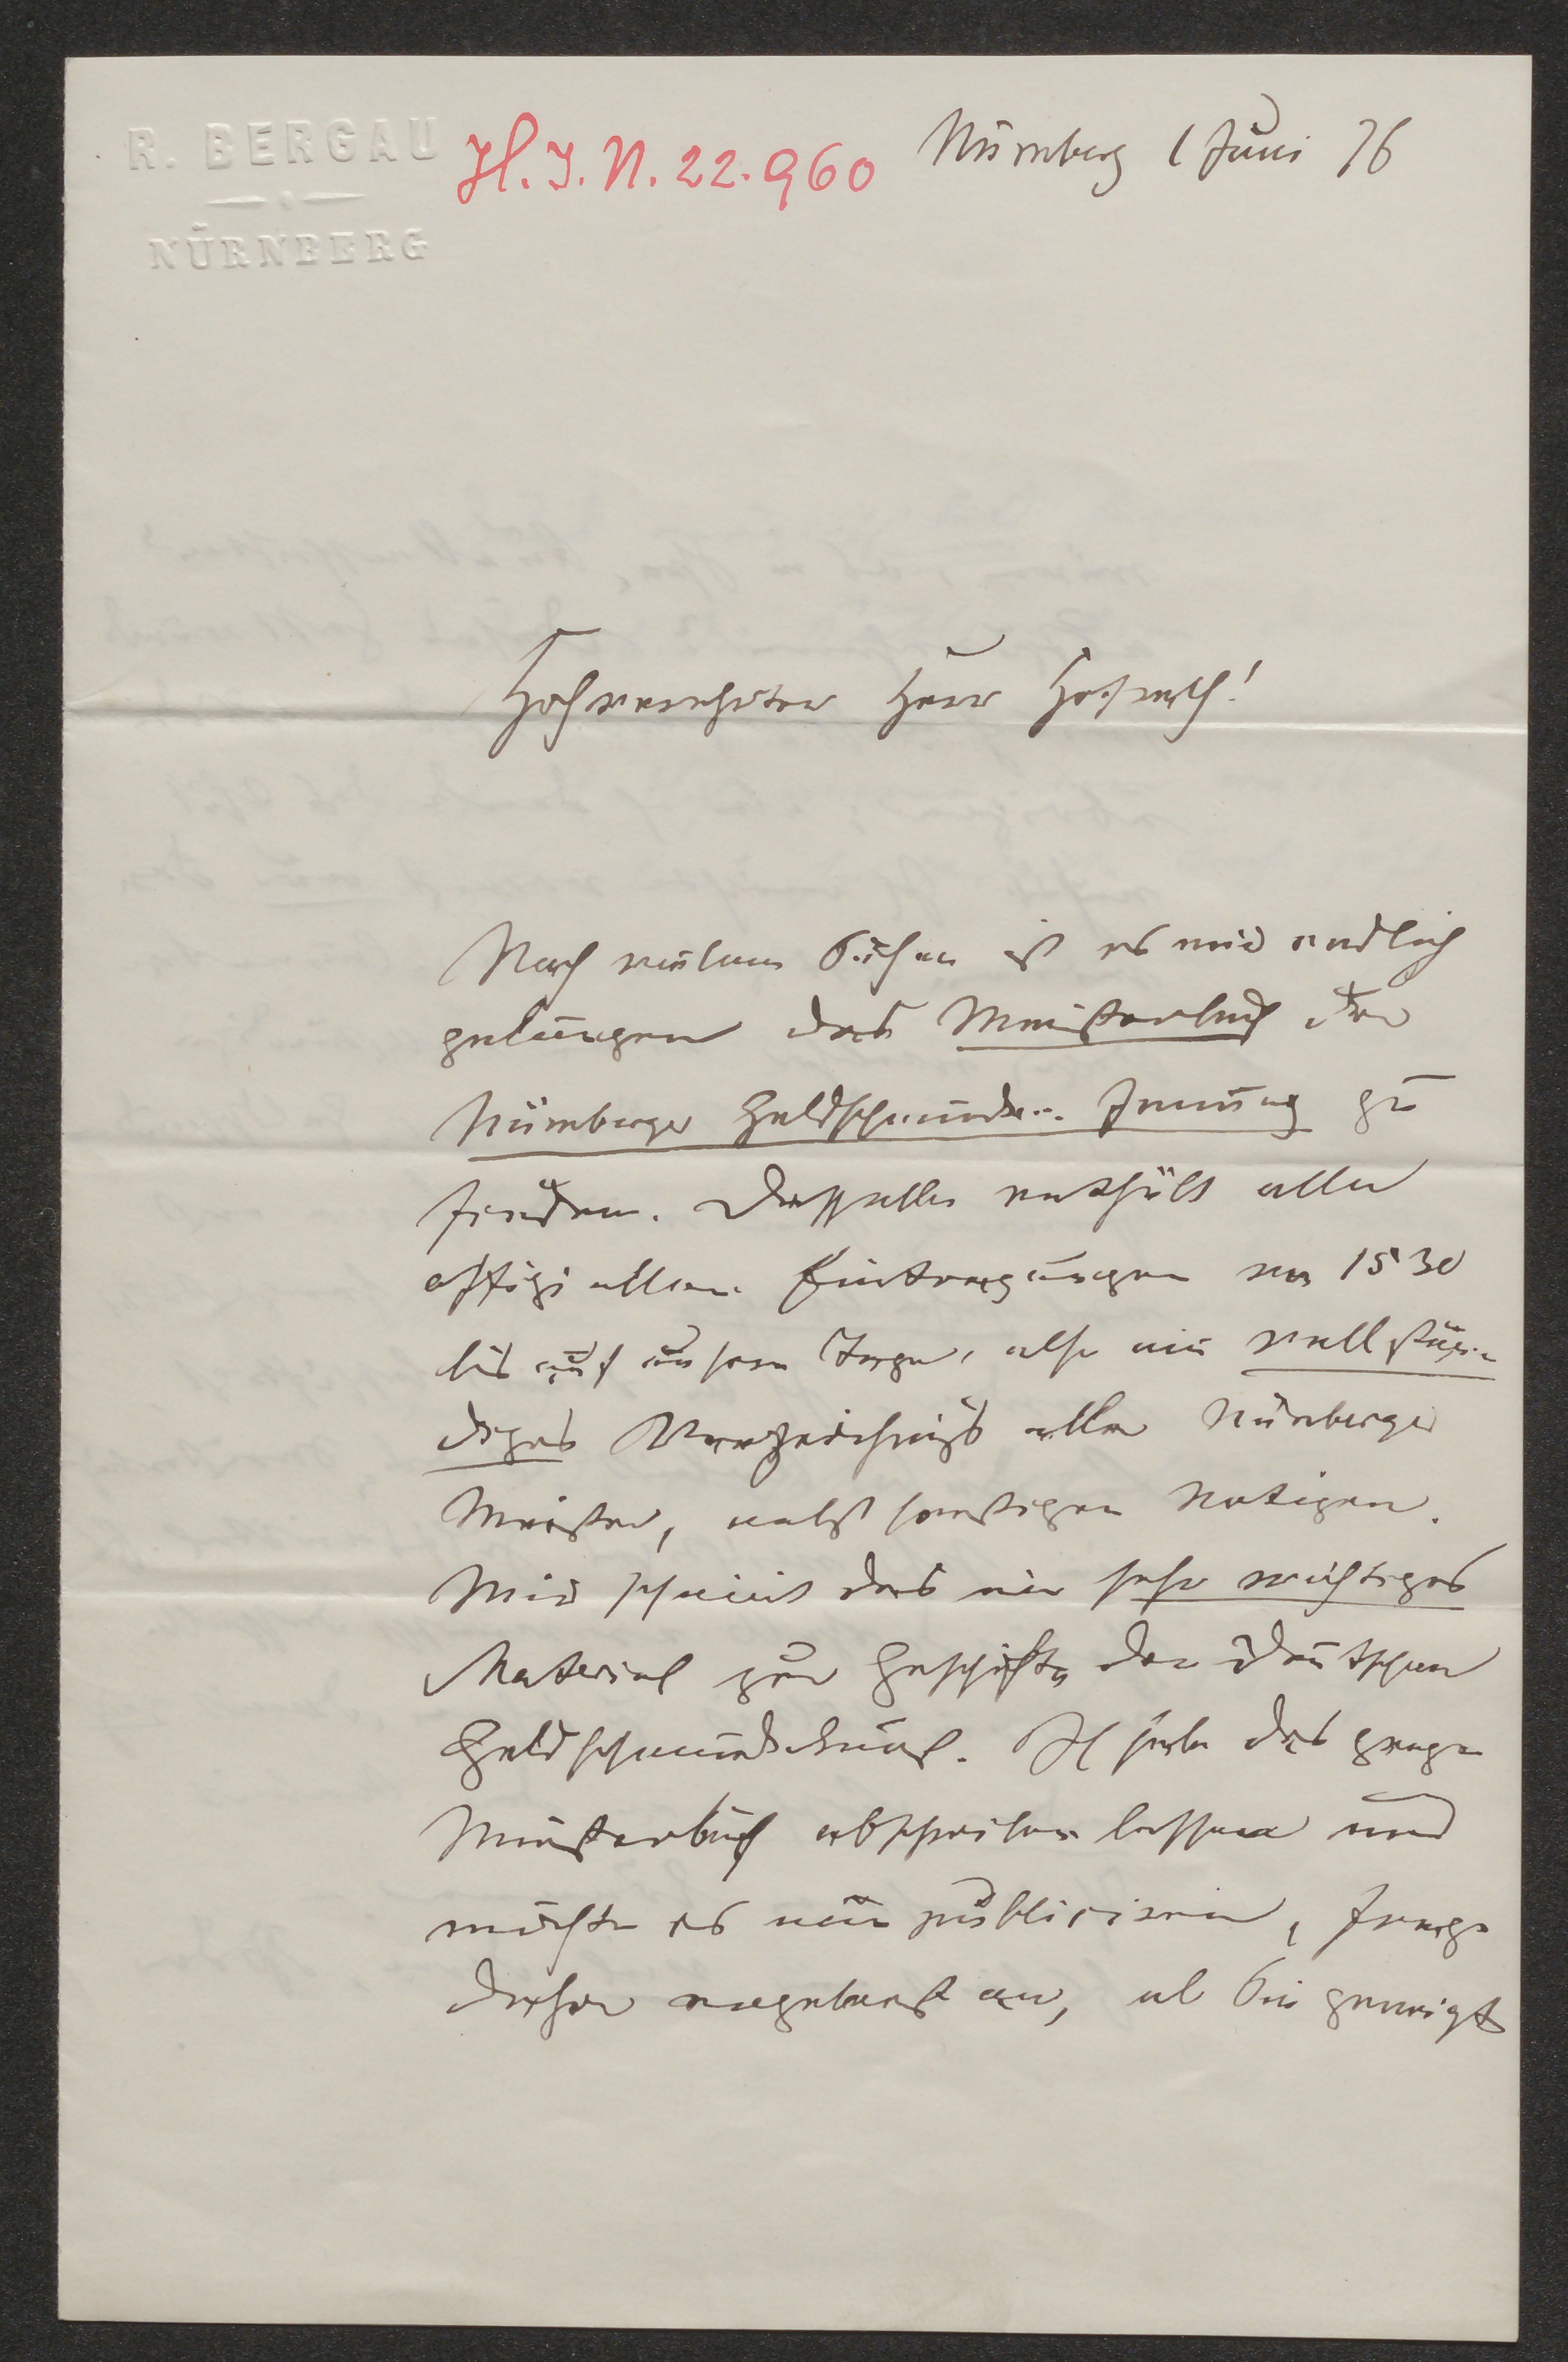 R. BERGAU
NÜRNBERG
H. I. N. 22.960
Nürnberg 1 Juni 76
Hochverehrter Herr Hofrath!
Nach vielem Suchen ist es mir endlich
gelungen das Meisterbuch der
Nürnberger Goldschmiede-Innung zu
finden. Dasselbe enthält alle
offiziellen Eintragungen von 1530
bis auf unsere Tage, also ein vollstän-
diges Verzeichniß aller Nürnberger
Meister, nebst sonstigen Notizen.
Mir scheint das ein sehr wichtiges
Material zur Geschichte der deutschen
Goldschmiedekunst. Ich habe das ganze
Meisterbuch abschreiben lassen und
möchte es nun publiciren, frage
daher ergebenst an, ob Sie geneigt